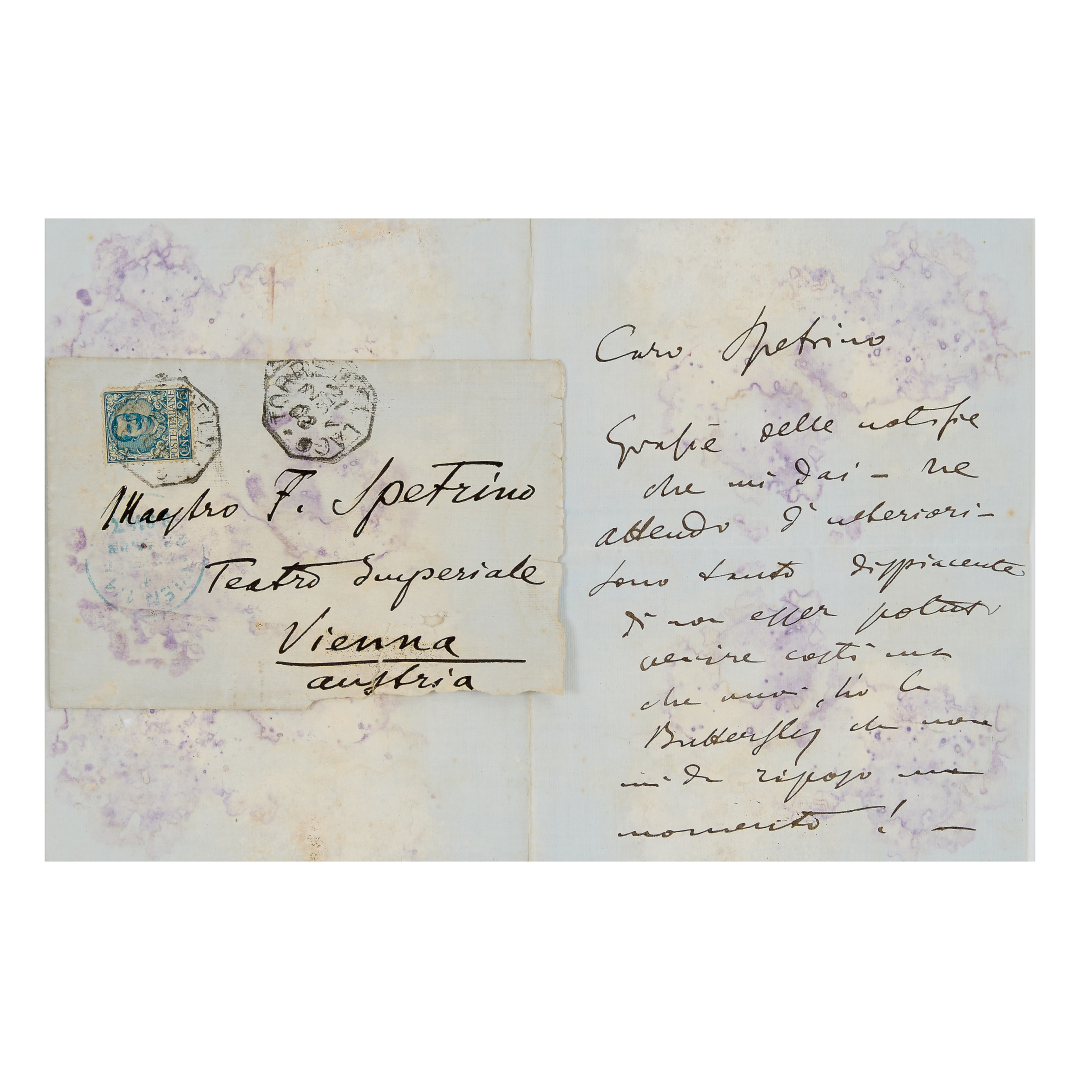 POSTE ITALIANE
CENT. 25
TORRE DEL LAGO
Maestro F. Spetrino
Teatro Imperiale
Vienna
austria
Caro Spetrino
Grazie delle notizie
che mi dai – ne
attendo d'ulteriori –
sono tanto dispiacente
di non esser potuto
venire costì ma
che vuoi, ho la
Butterfly che non
mi dà riposo un
momento! –